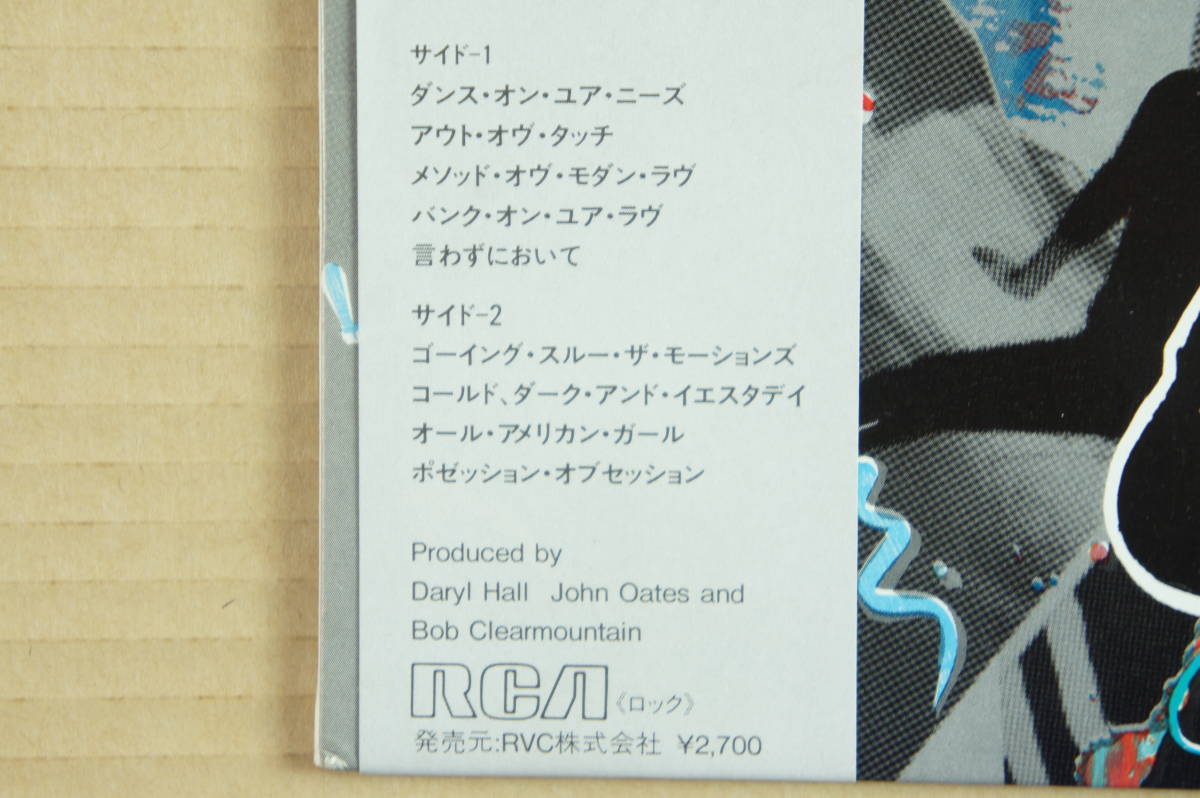 サイド-1
ダンス・オン・ユア・ニーズ
アウト・オヴ・タッチ
メソッド・オヴ・モダン・ラヴ
バンク・オン・ユア・ラヴ
言わずにおいて
サイド-2
ゴーイング・スルー・ザ・モーションズ
コールド、ダーク・アンド・イエスタデイ
オール・アメリカン・ガール
ポゼッション・オブセッション
Produced by
Daryl Hall John Oates and
Bob Clearmountain
RCA《ロック》
発売元:RVC株式会社 ¥2,700